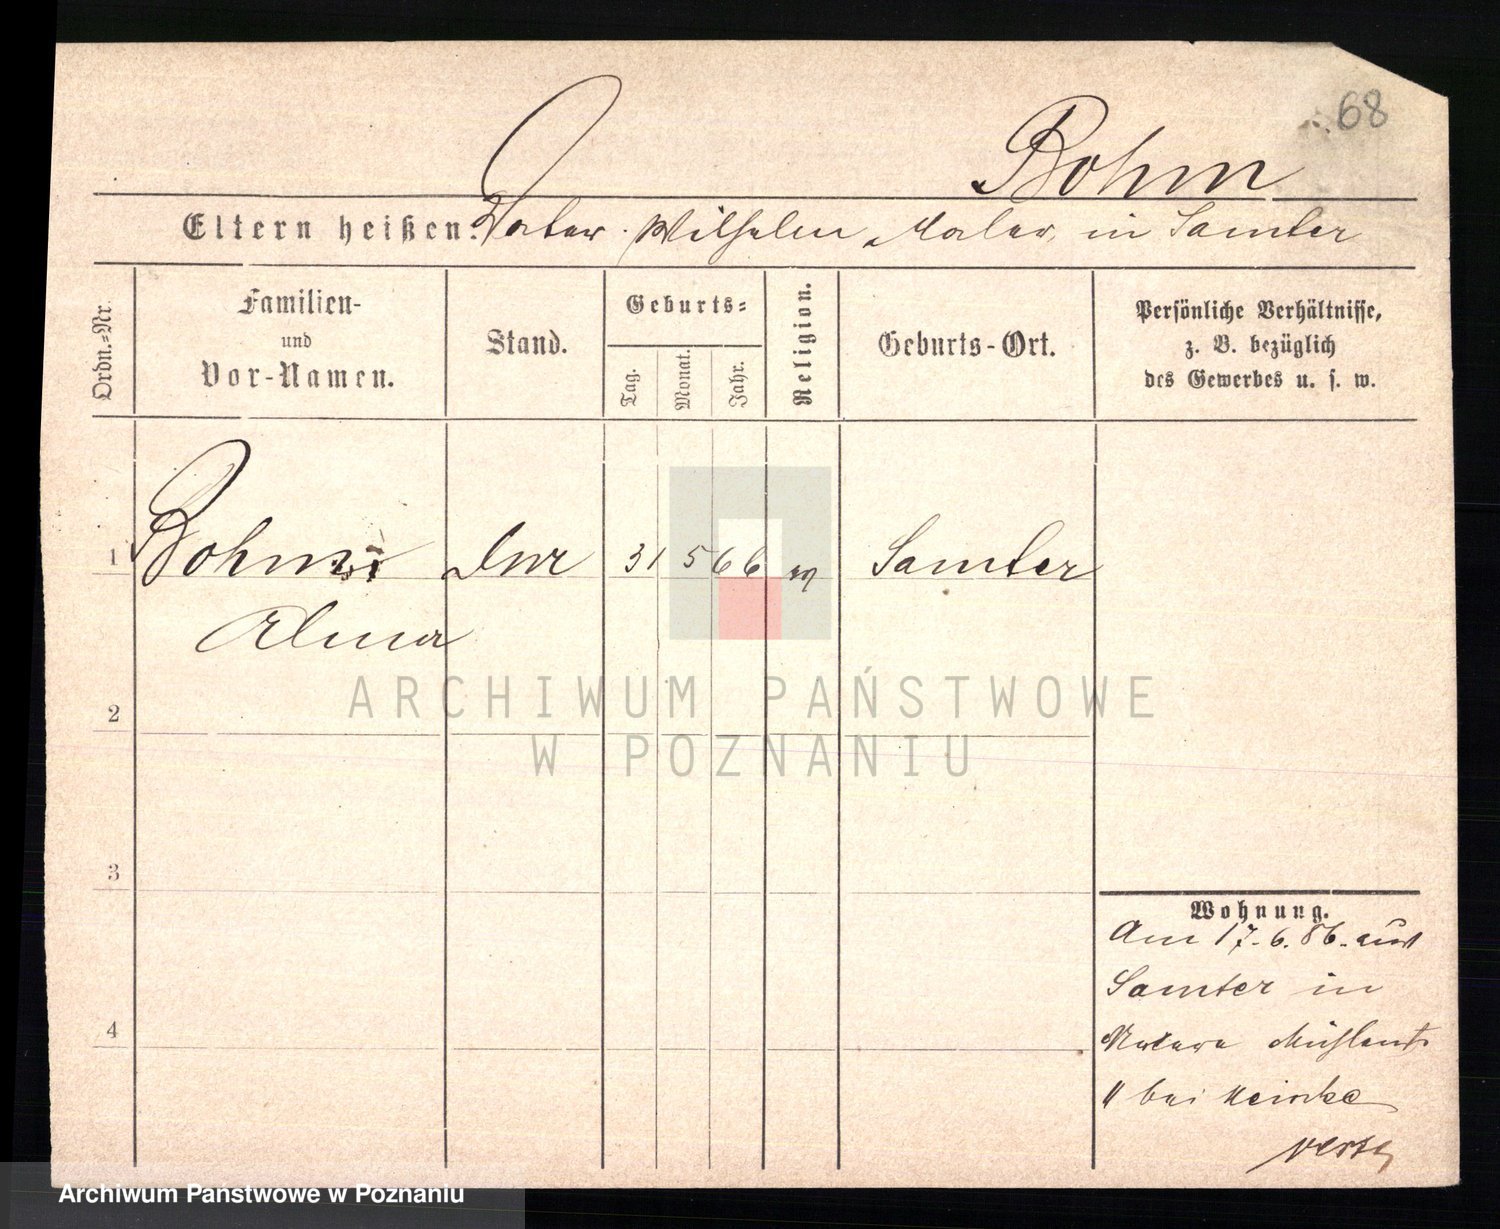 68
Bohm
Eltern heißen: Vater Wilhelm Maler in Samter
Ordn.=Nr.
Familien-
und
Vor-Namen.
Stand.
Geburts=
Tag.
Monat.
Jahr.
Religion.
Geburts-Ort.
Persönliche Verhältnisse,
z. B. bezüglich
des Gewerbes u. s. w.
1 Bohm 31 5 66 Samter
Alma
ARCHIWUM PAŃSTWOWE
W POZNANIU
2
3
4
Wohnung.
Am 17.6.86. aus
Samter in
" bei
Archiwum Państwowe w Poznaniu